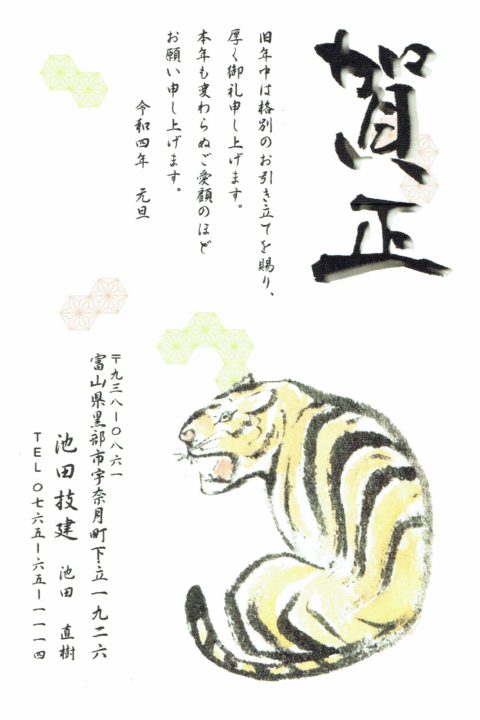 賀正
旧年中は格別のお引き立てを賜り、
厚く御礼申し上げます。
本年も変わらぬご愛顧のほど
お願い申し上げます。
令和四年 元旦
〒九三八ー〇八六一
富山県黒部市宇奈月町下立一九二六
池田技建 池田 直樹
TEL〇七六五ー六五ー一一一四